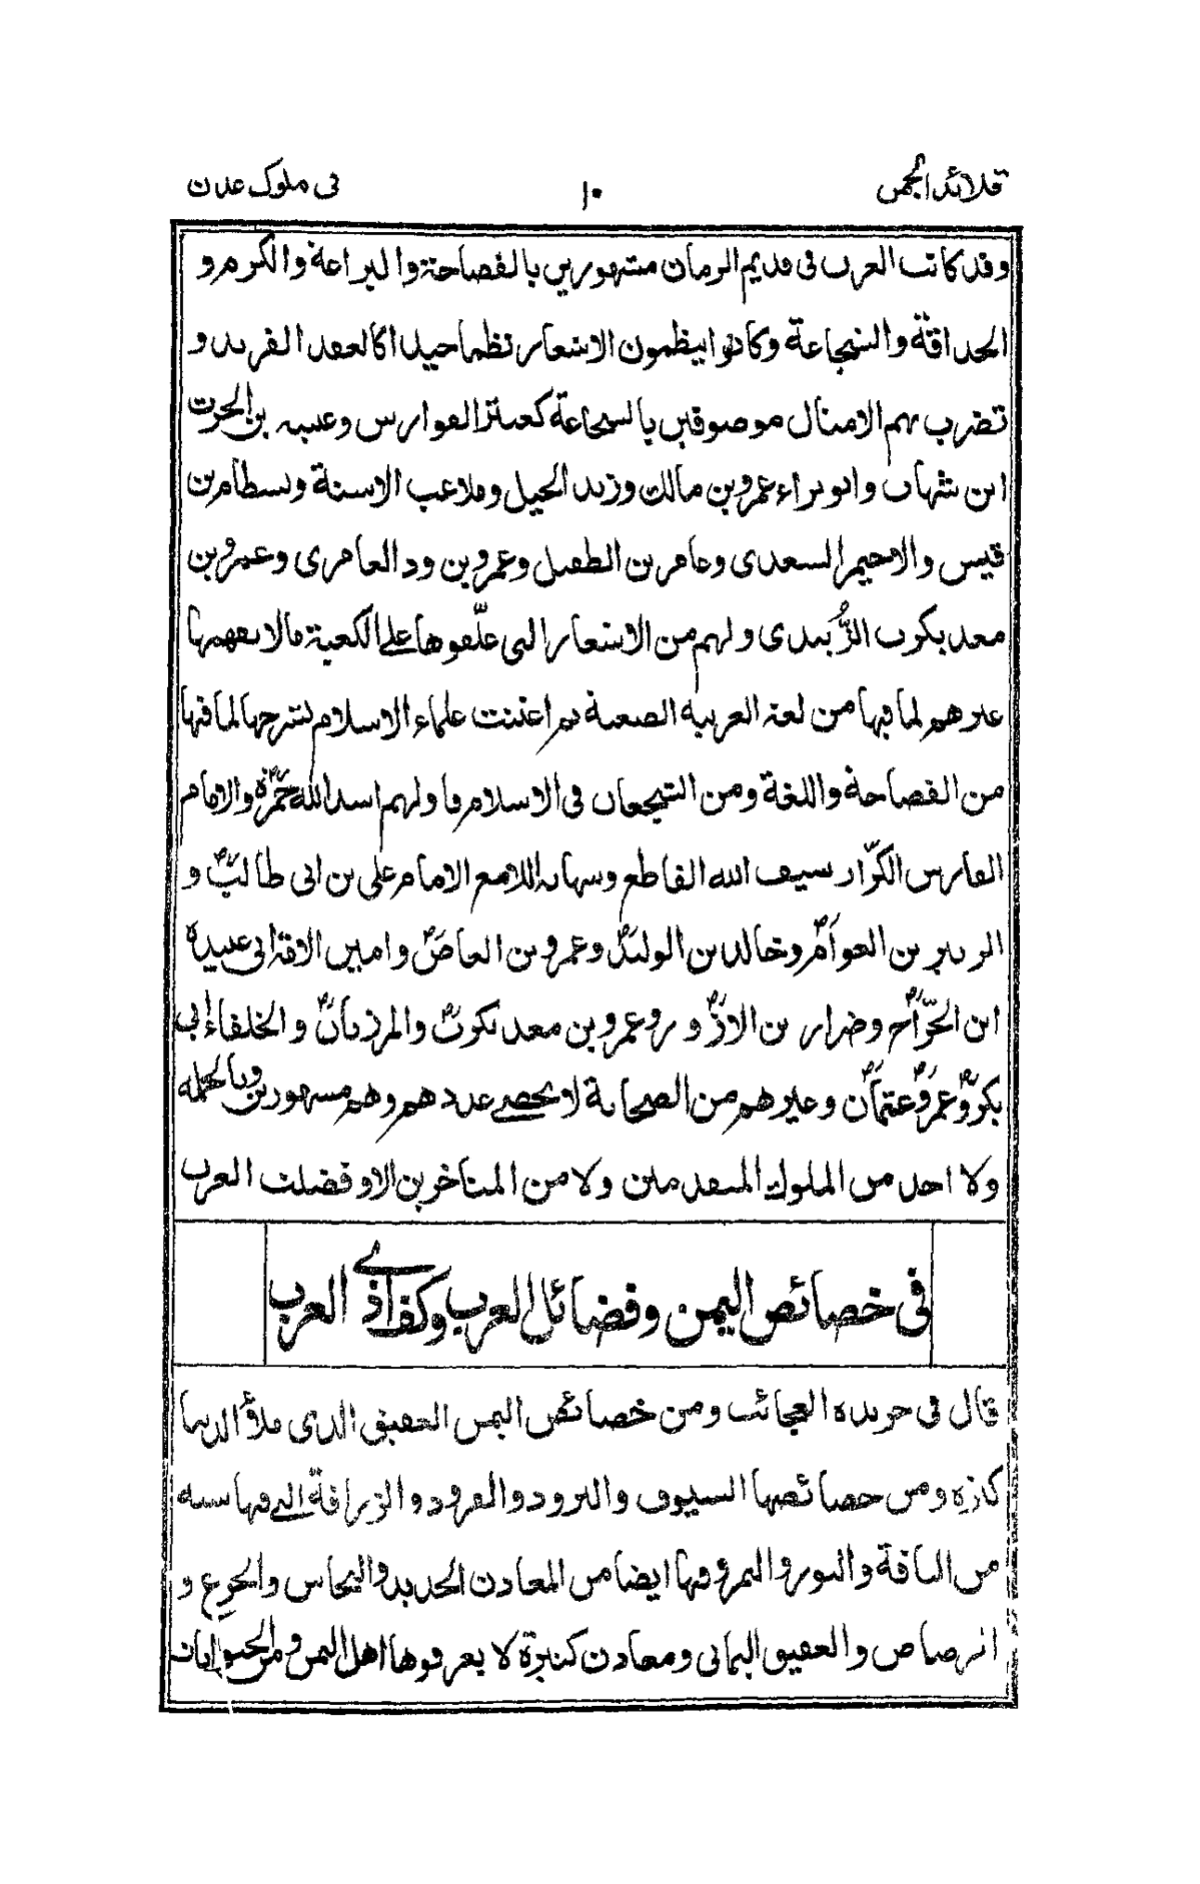 قلائد الجمن ١٠ فى ملوك عدن
وقد كانت العرب فى قديم الزمان مشهورين بالفصاحة والبراعة والكرم و
الحداقة والشجاعة وكانوا ينظمون الاشعار نظما جيدا كالعقد الفريد و
تضرب بهم الامثال موصوفين بالشجاعة كعنتر الفوارس وعتيبه بن الحرث
ابن شهاب وابو براء عمرو بن مالك وزيد الخيل وملاعب الاسنة وبسطام بن
قيس والاحيمر السعدى وعامر بن الطفيل وعمرو بن ود العامرى وعمرو بن
معديكرب الزُّبيدى ولهم من الاشعار التى علّقوها على الكعبة مالا يفهمها
غيرهم لما فيها من لغة العربية الصعبة ثم اعتنت علماء الاسلام بشرحها لما فيها
من الفصاحة واللغة ومن الشجعان فى الاسلام فاولهم اسد الله حمزةؓ والامام
الفارس الكرّار سيف الله القاطع وشهابه اللامع الامام على بن ابى طالبؓ و
الزبير بن العوامؓ وخالد بن الوليدؓ وعمرو بن العاصؓ وامين الامة ابى عبيدة
ابن الجرّاحؓ وضرار بن الازؓور وعمرو بن معد يكربؓ والمرزبانؓ والخلفاء أبى
بكرؓ وعمرؓ وعثمانؓ وغيرهم من الصحابة لا يحصى عددهم وهم مشهورين وبالجمله
ولا احد من الملوك المتقدمين ولا من المتأخرين الا وفضلت العرب
فى خصائص اليمن وفضائل العرب وكفا اذى العرب
قال فى خريدة العجائب ومن خصائص اليمن العقيق الذى ملأ الدنيا
كثرة ومن خصائصها السيوف والبرود والقرود والزرافة التى فيها شبه
من الناقة والثور والنمر وفيها ايضا من المعادن الحديد والنحاس والجزع و
الرصاص والعقيق اليمانى ومعادن كثيرة لا يعرفوها اهل اليمن ومن الحيوانات